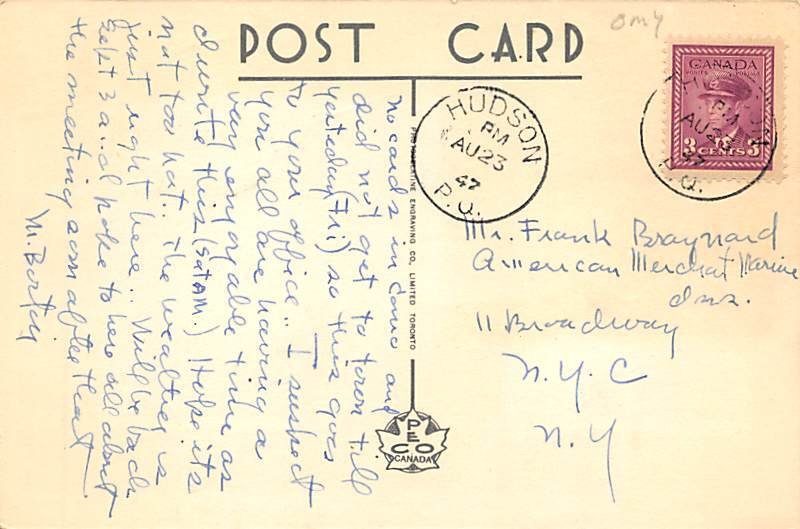 POST CARD
omy
CANADA
POSTES POSTAGE
3 CENTS 3
HUDSON
PM
AU 23
47
P.Q.
HUDSON
PM
AU 23
47
P.Q.
No cards in and
did not get to town till
yesterday (Fri) so this goes
to your office.. I suspect
you all are having a
very enjoyable time as
I write this (Sat AM.) Hope its
not too hot.. The weather is
just right here.. Will be back
Sept 3 and hope to here all about
the meeting soon after that
M.
PHOTOGELATINE ENGRAVING CO., LIMITED TORONTO
PECO
CANADA
Mr. Frank Braynard
American Merchat Marine
Ins.
11 Broadway
N.Y.C
N.Y